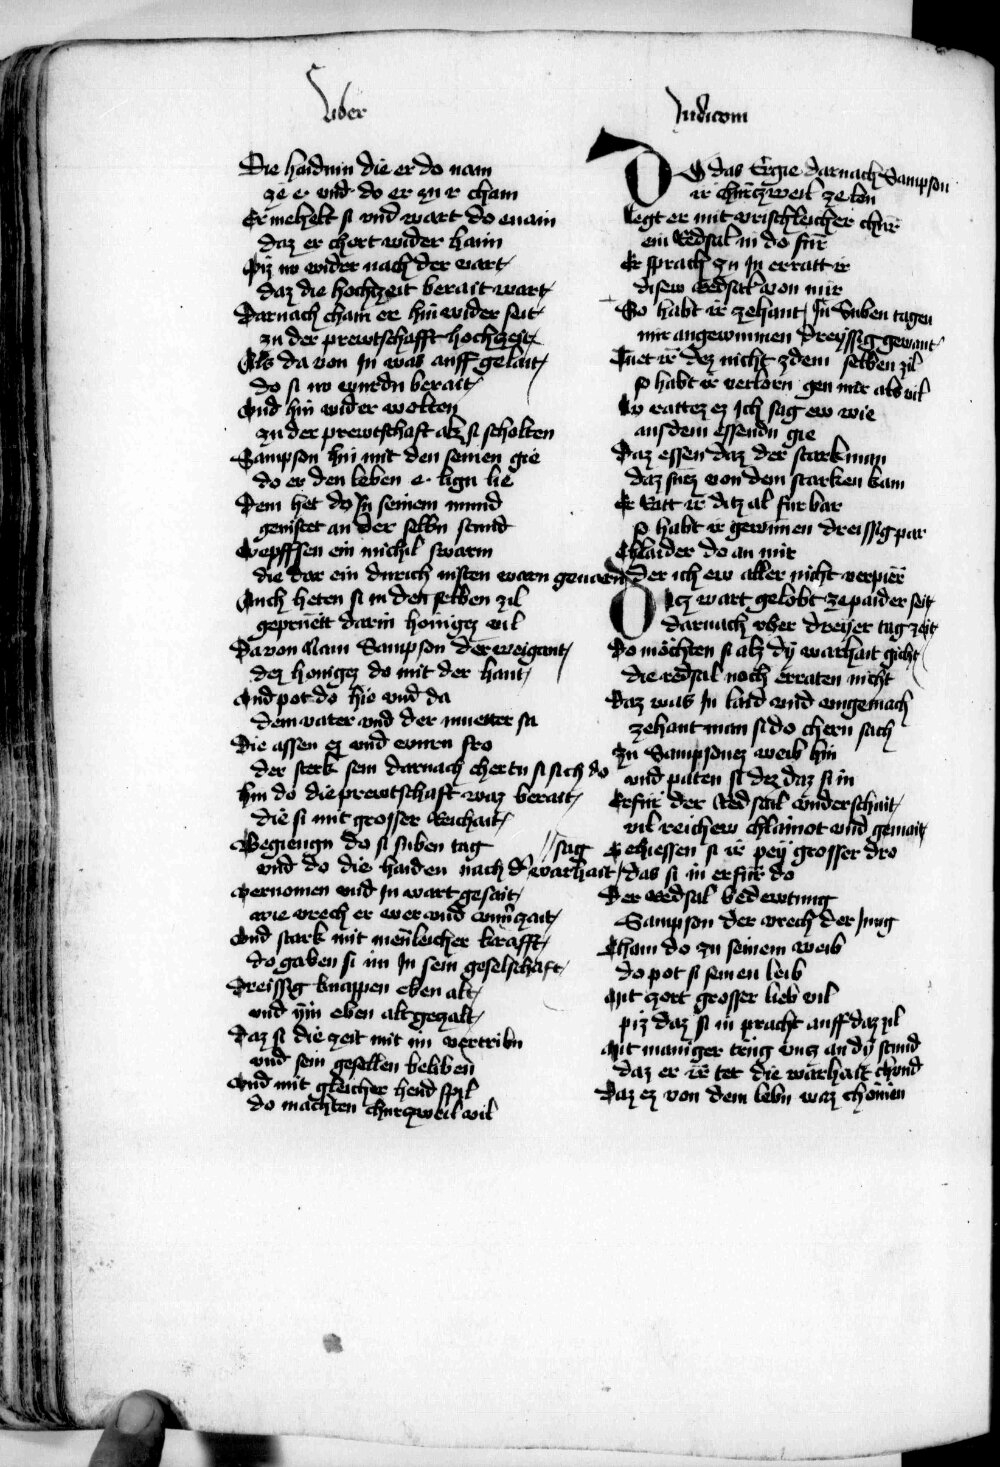 Liber
Judicum
Die haidnin die er do nam
ze e und do er zu ir cham
Er mehelt si und wart do enain
daz er chort wider haim
Piz no wider nach der vart
daz die hochtzeit berait wart
Darnach cham er hin wider seit
zu der prewtschafft hochzeit
Als da von In was auff gelait
do si no wurdn berait
Und hin wider wolten
zu der prewtschaft alz si scholten
Sampson hin mit den seinen gie
do er den leben e lign lie
Dem het do In seinem mund
genistet an der selbn stund
Wepffsen ein michil swarm
die dar ein durich nisten warn gevarn
Auch heten si in den selben zil
geprueft darin honigez vil
Da von Nam Sampson der weigant
dez honigez do mit der hant
Und pot do hie und da
dem vater und der mueter sa
Die assen ez und wurn fro
der sterk sein darnach chertn si sich do
hin do die prewtschaft waz berait
die si mit grosser Reichait
Begiengn do si suben tag
und do die haiden nach der warhait sag
vernomen und In wart gesait
wie vrech er wer und
Und stark mit menleicher krafft
do gaben si im In sein geselschaft
Dreissig knappen eben alt
und ym eben alt gezalt
Daz si die zeit mit im vertribn
und sein gesellen beliben
Und mit gleicher hend spil
do machten churczweil vil
Do das Ergie darnach Sampson
ir churczweil ze lon
Legt er mit vrischleicher chur
ein Redsal in do fur
Er sprach zu In erratt ir
disew Redsal von mir
So habt ir zehant In Suben tagen
mir angewinnen dreyssig gewant
Tuet ir dez nicht zdem selben zil
so habt ir verlorn gen mir als vil
No rattez ez Ich sag ew wie
aus dem essendn gie
Daz essen daz der stark man
daz suez von dem starken kam
Er Ratt ir ditz al fur bar
so habt ir gewinnen dreissig par
Chlaider do an mir
der ich ew aller nicht verpier
Ditz wart gelobt ze paider seit
darnach uber dreyer tag zeit
Do mochten si alz dy warhait gicht
die redsal noch erraten nicht
Daz was In laid und ungemach
zehant man si do chern sach
Zu Sampsonez weib hin
und paten si dez daz si in
Erfur der Redsal underschait
vil reichew chlainot und gemait
Gehiessen si ir pey grosser dro
das si in erfur do
Der Redsal bedewtung
Sampson der vrech der Jung
Cham do zu seinem weib
do pot si seinen leib
Mit zort grosser lieb vil
piz daz si in pracht auff daz zil
Mit maniger trug uncz an dy stund
daz er ir tet die warhait chund
Daz ez von dem lebn waz chomen